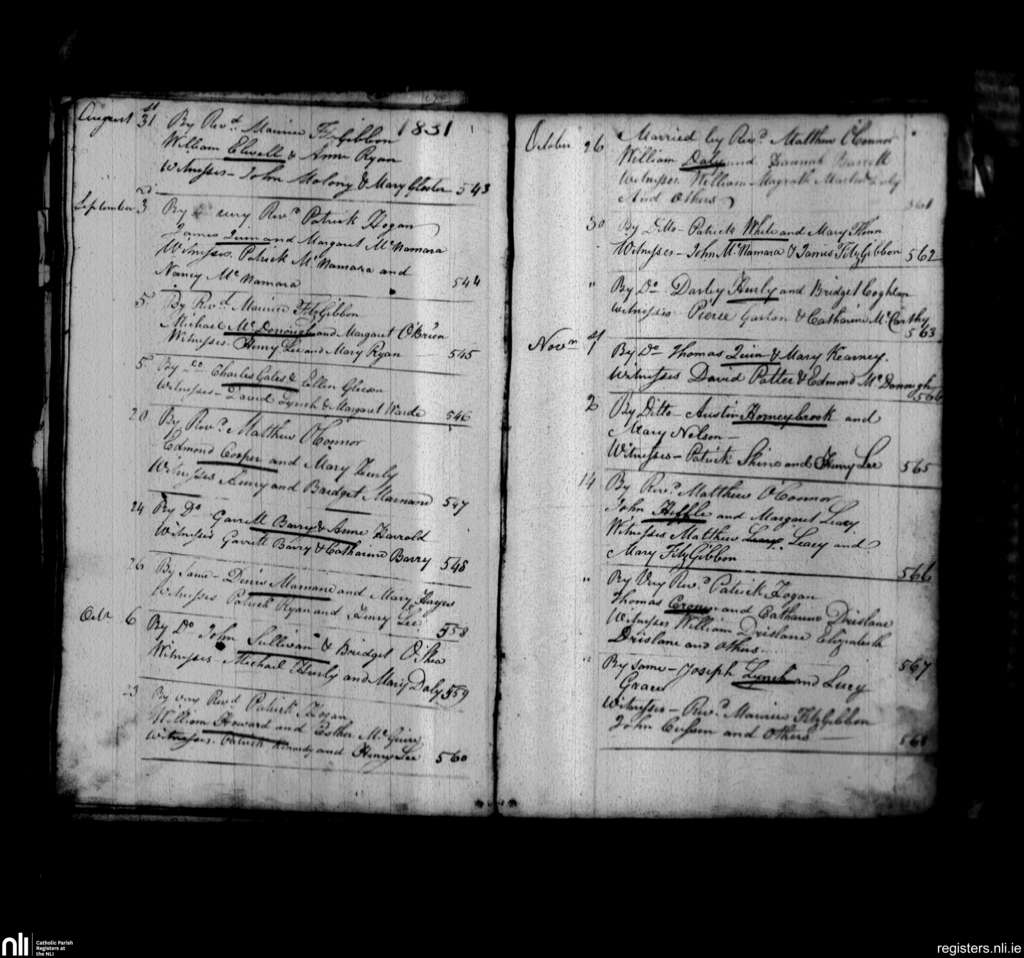 1831
August 31st By Revd. Maurice FitzGibbon
William Elwell & Anne Ryan
Witnesses - John Molony & Mary 543
September 3d By very Revd. Patrick Hogan
James Quin and Margaret McNamara
Witnesses. Patrick McNamara and
Nancy McNamara 544
5 By Revd. Maurice FitzGibbon
Michael McDonough and Margaret OBrien
Witnesses - Henry Lee and Mary Ryan 545
5 By Do Charles Gates & Ellen Gleeson
Witnesses - David Lynch & Margaret Warde 546
20 By Revd. Matthew OConnor
Edmond Cooper and Mary Hurly
Witnesses Henry and Bridget Marnane 547
24 By Do Garrett Barry & Anne Harrold
Witnesses Garrett Barry & Catharine Barry 548
26 By Same - Denis Marnane and Mary Hayes
Witnesses Patrick Ryan and Henry Lee 558
Octr 6 By Do John Sullivan & Bridget O'Shea
Witnesses - Michael Hurly and Mary Daly 559
23 By very Revd Patrick Hogan
William Howard and Esther McGuire
Witnesses - Patrick Kennedy and Henry Lee 560
October 26 Married by Revd. Matthew OConnor
William Daly and Hannah Barrett
Witnesses William Magrath
And Others 561
30 By Ditto - Patrick White and Mary
Witnesses - John McNamara & James FitzGibbon 562
" By Do - Darley Hurly and Bridget Coghlan
Witnesses Pierce Garton & Catharine McCarthy
563
Novr 1 By Do Thomas Quin & Mary Kearney.
Witnesses David Potter & Edmond McDonough
564
2 By Ditto - Austin Honeybrook and
Mary Nelson -
Witnesses - Patrick Skine and Henry Lee 565
14 By Revd. Matthew OConnor
John Heffle and Margaret Leacy
Witnesses Matthew Leacy and
Mary FitzGibbon 566
" By Very Revd. Patrick Hogan
Thomas Crowe and Catharine Drislane
Witnesses William Drislane Elizabeth
Drislane and Others 567
" By Same - Joseph Lynch and Lucy
Graces
Witnesses - Revd. Maurice FitzGibbon
John Cussen and Others 568
nli
Catholic Parish
Registers at
the NLI
registers.nli.ie